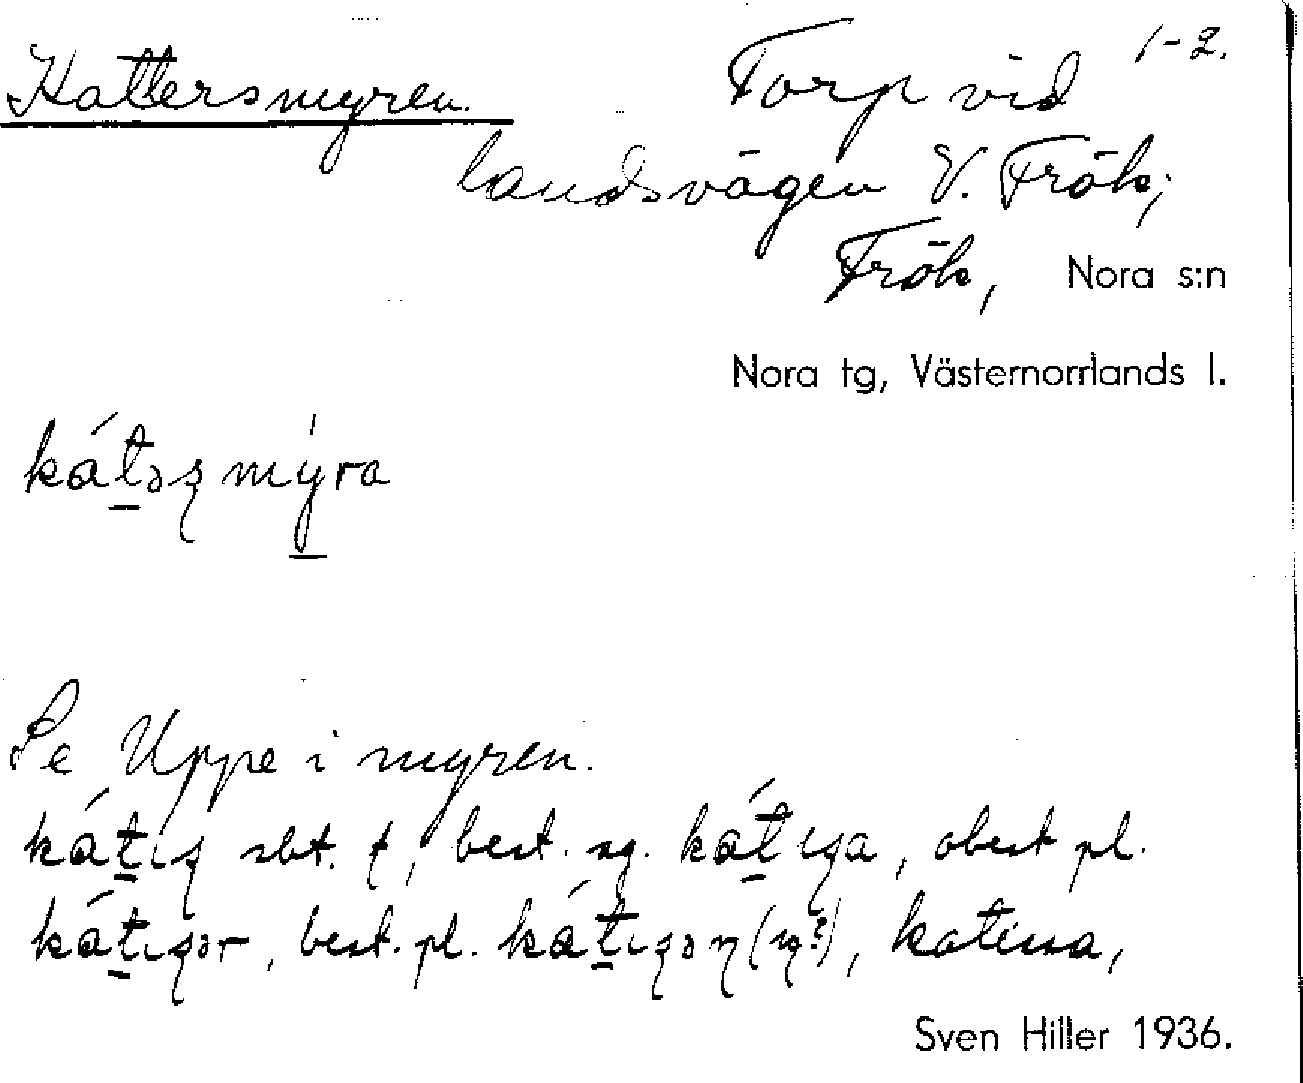 1-2.
Kattersmyren. Torp vid
landsvägen V. Frök;
Frök, Nora s:n
Nora tg, Västernorrlands l.
kát̲əʂmý̲ra
Se Uppe i myren.
kát̲ıʂ sbt. f, best. sg. kát̲ıʂa, obest pl.
kát̲ıʂər, best. pl. kát̲ıʂəɳ (ɳ?), katissa,
Sven Hiller 1936.